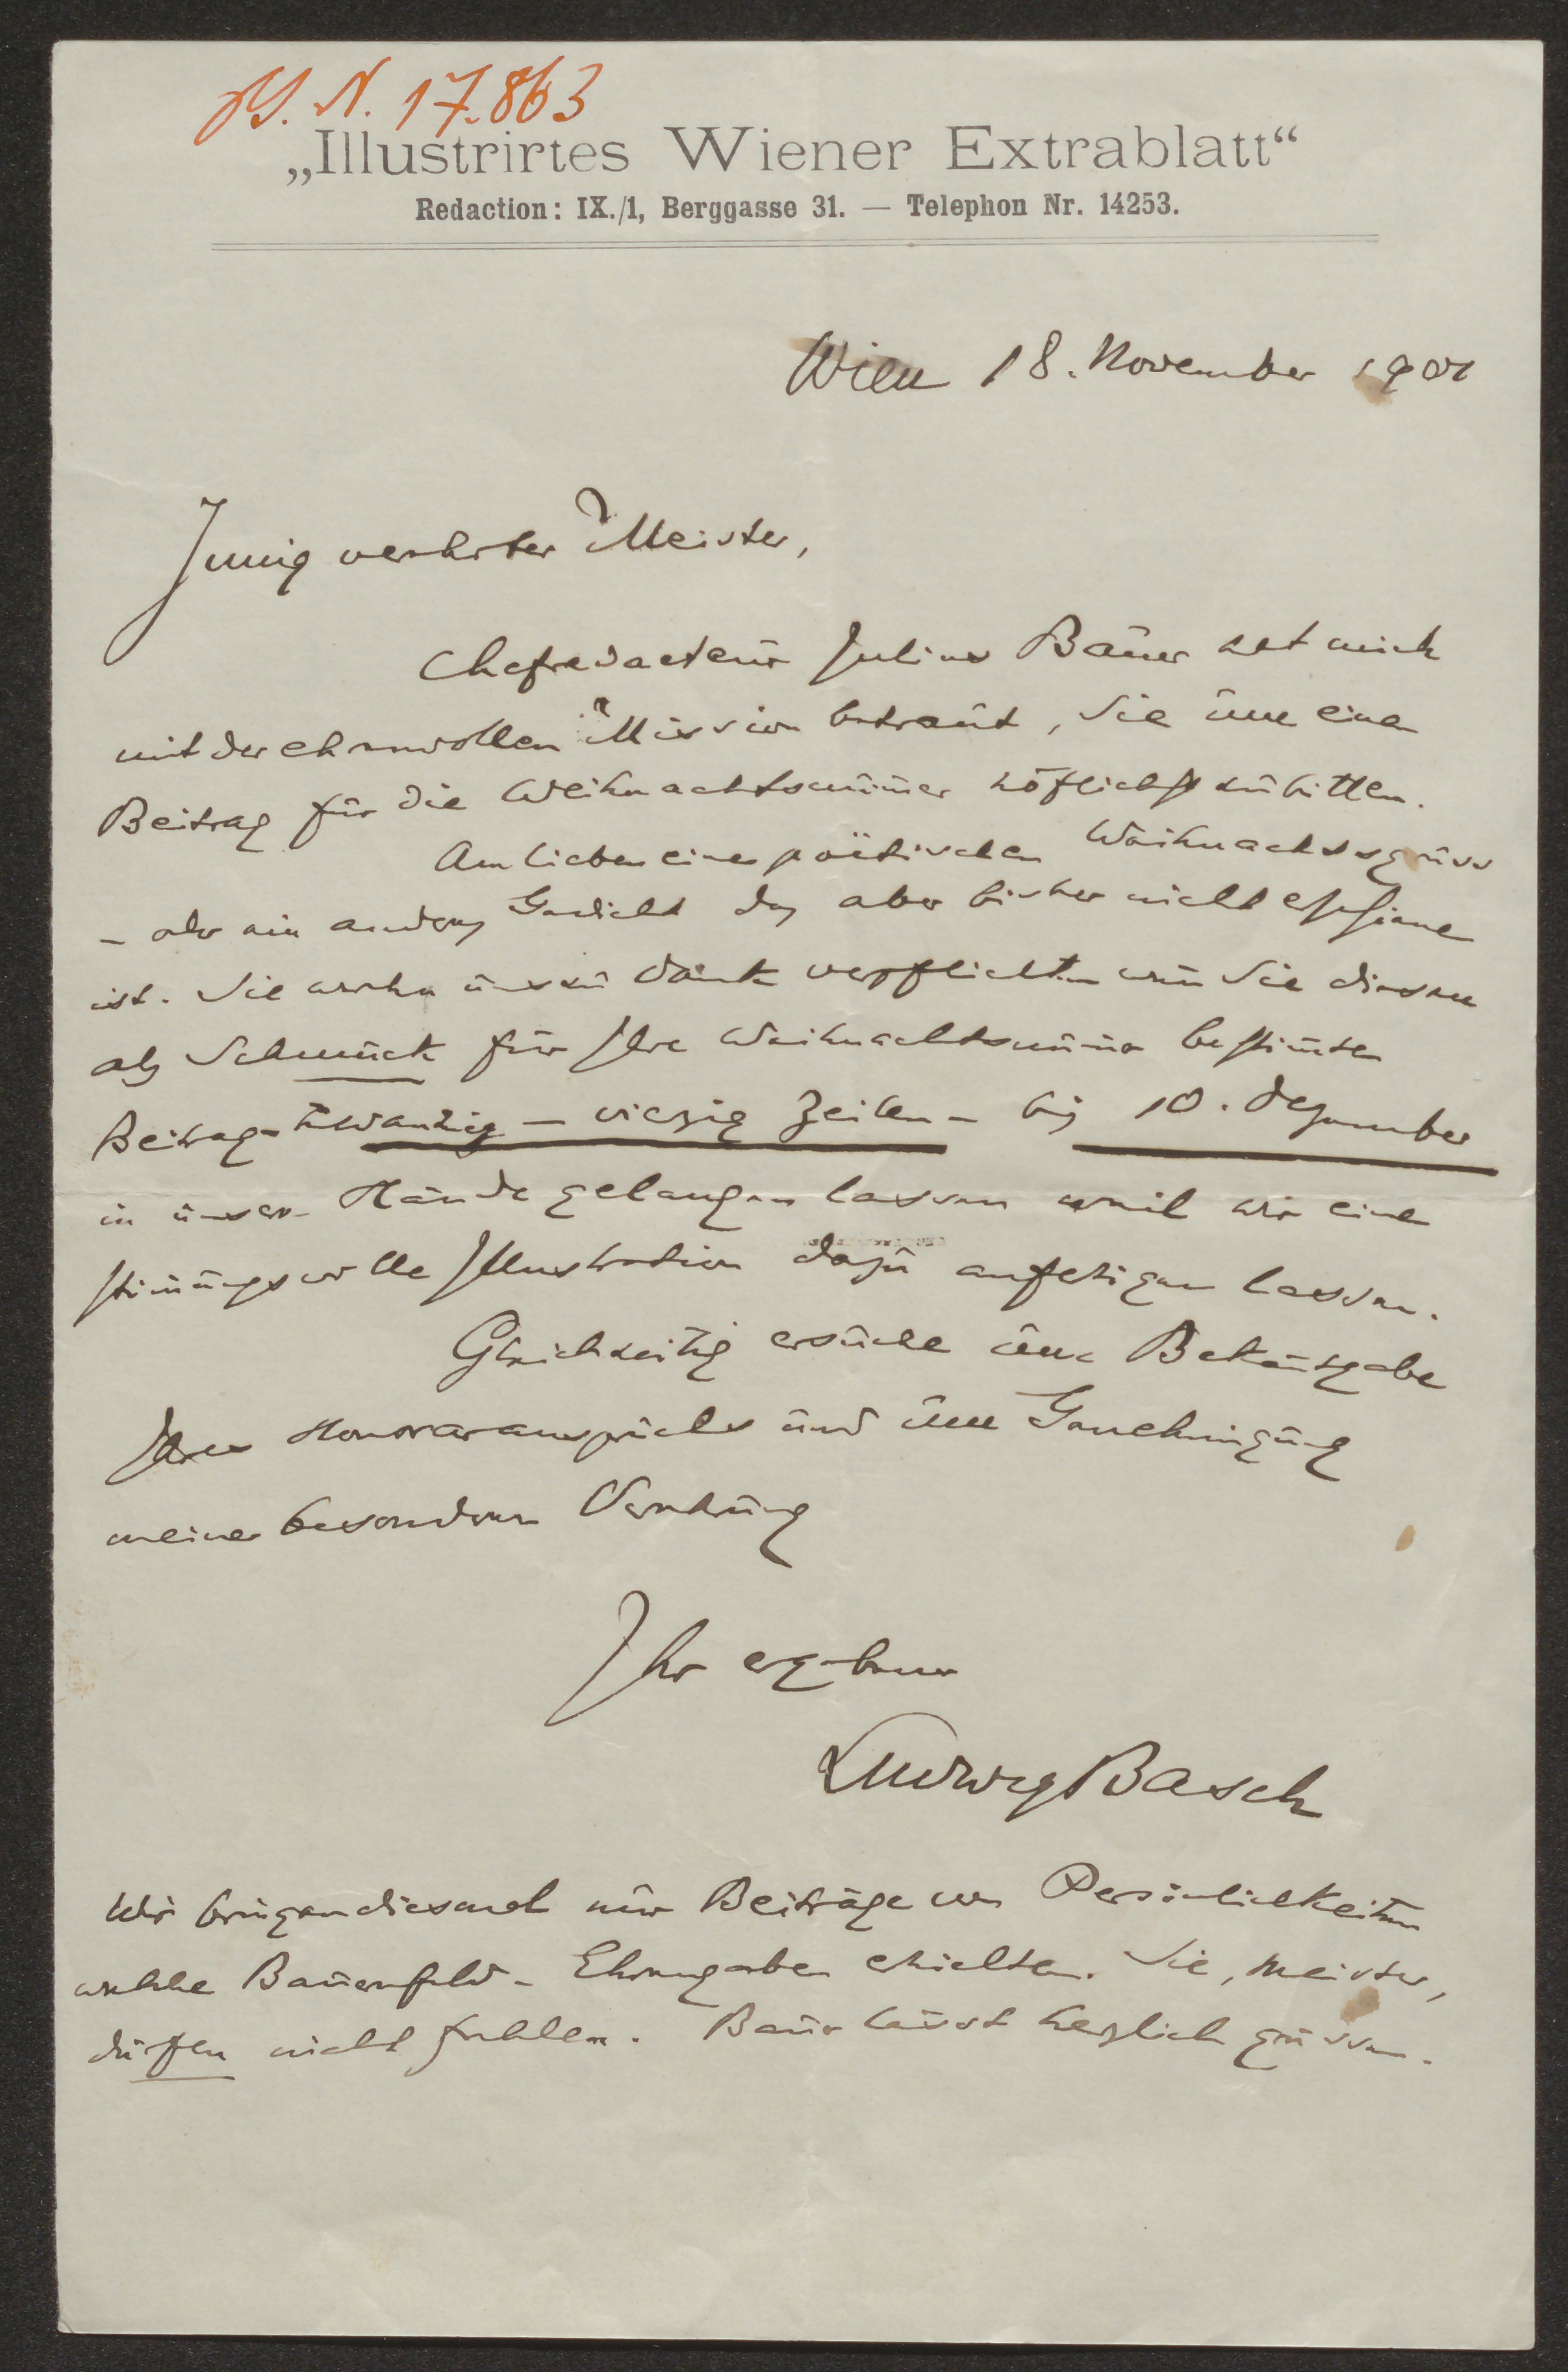 J. N. 17.863
„Illustrirtes Wiener Extrablatt“
Redaction: IX./1, Berggasse 31. — Telephon Nr. 14253.
Wien 18. November 1901
Innig verehrter Meister,
Chefredacteur Julius Bauer hat mich
mit der ehrenvollen Mission betraut, Sie um einen
Beitrag für die Weihnachtsnum̄er höflichst zu bitten.
Am lieben einen poëtischen Weihnachtsgruss
– oder ein anderes Gedicht das aber bisher nicht erschienen
ist. Sie werden uns zu Dank verpflichten wen̄ Sie diesen
als Schmuck für Ihre Weihnachtsnum̄er bestim̄ten
Beitrag – zwanzig – vierzig Zeilen – bis 10. Dezember
in unsere Hände gelangen lassen weil wir eine
stim̄ungsvolle Illustration dazu anfertigen lassen.
Gleichzeitig ersuche um Bekan̄tgabe
Ihres Honoraranspruches und um Genehmigung
meiner besonderen Verehrung
Ihr ergebener
Ludwig Basch
Wir bringen diesmal nur Beiträge von Persönlichkeiten
welche Bauernfeld-Ehrengaben erhielten. Sie, Meister,
dürfen nicht fehlen. Bauer lässt herzlich grüssen.